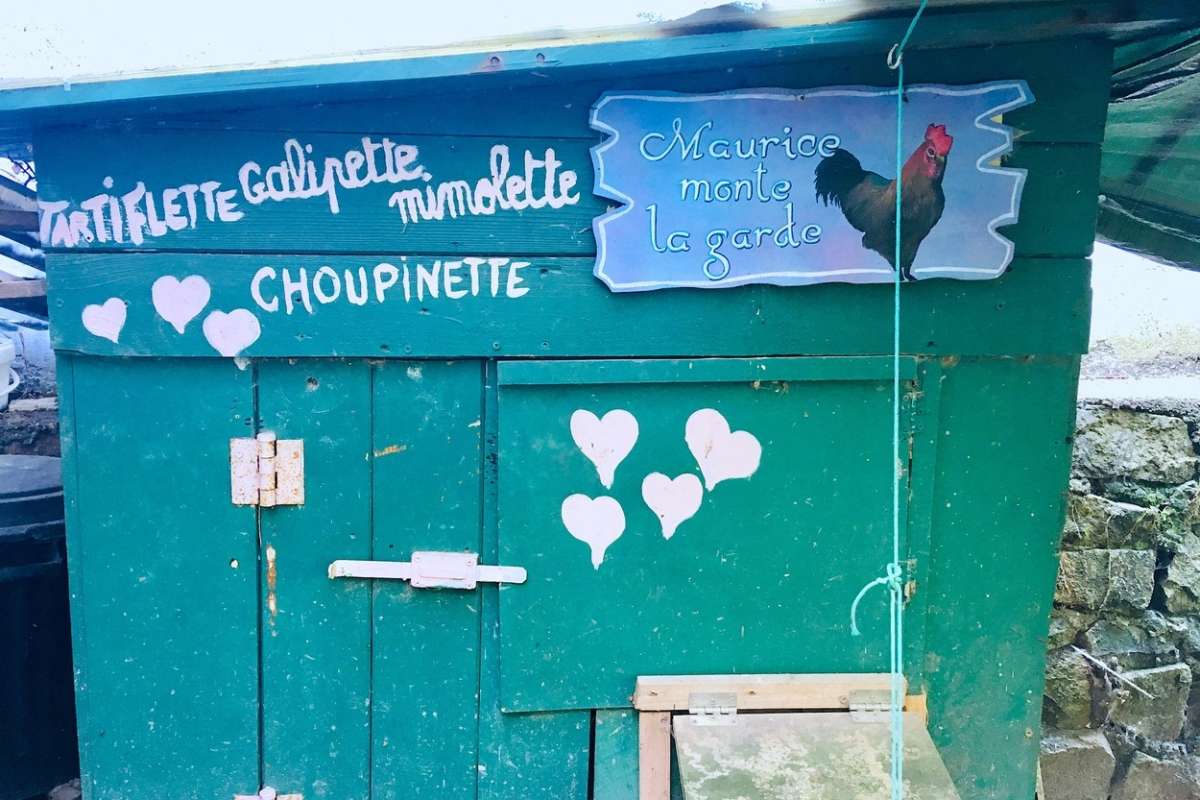 TARTIFLETTE Galipette mimolette
CHOUPINETTE
Maurice
monte
la garde